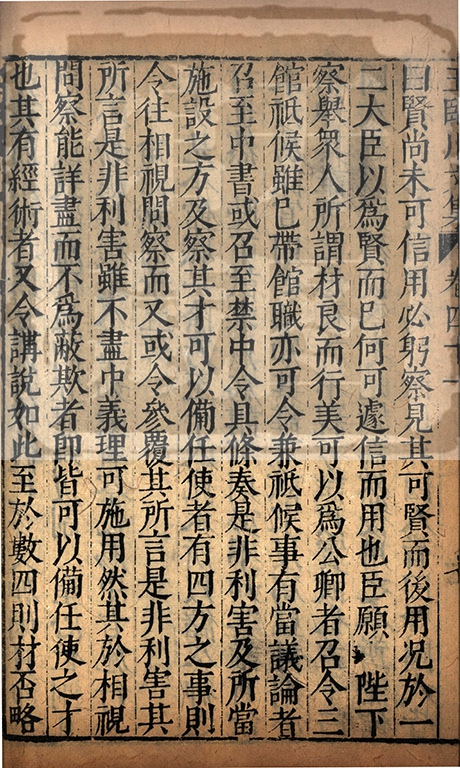 曰賢尚未可信用必躬察見其可賢而後用况於一
二大臣以爲賢而已何可遽信而用也臣願 陛下
察舉衆人所謂材良而行美可以爲公卿者召令三
館祗候雖已帶館職亦可令兼祗候事有當議論者
召至中書或召至禁中令具條奏是非利害及所當
施設之方及察其才可以備任使者有四方之事則
令往相視問察而又或令參覆其所言是非利害其
所言是非利害雖不盡中義理可施用然其於相視
問察能詳盡而不爲蔽欺者即皆可以備任使之才
也其有經術者又令講說如此至於數四則材否略